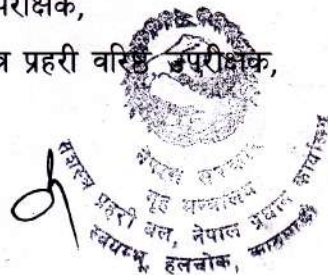 परीक्षक,
त्र प्रहरी वरिष्ठ उपरीक्षक,
नेपाल सरकार
गृह मन्त्रालय
सशस्त्र प्रहरी बल, नेपाल प्रधान कार्यालय
स्वयम्भू, हलचोक, काठमाडौं